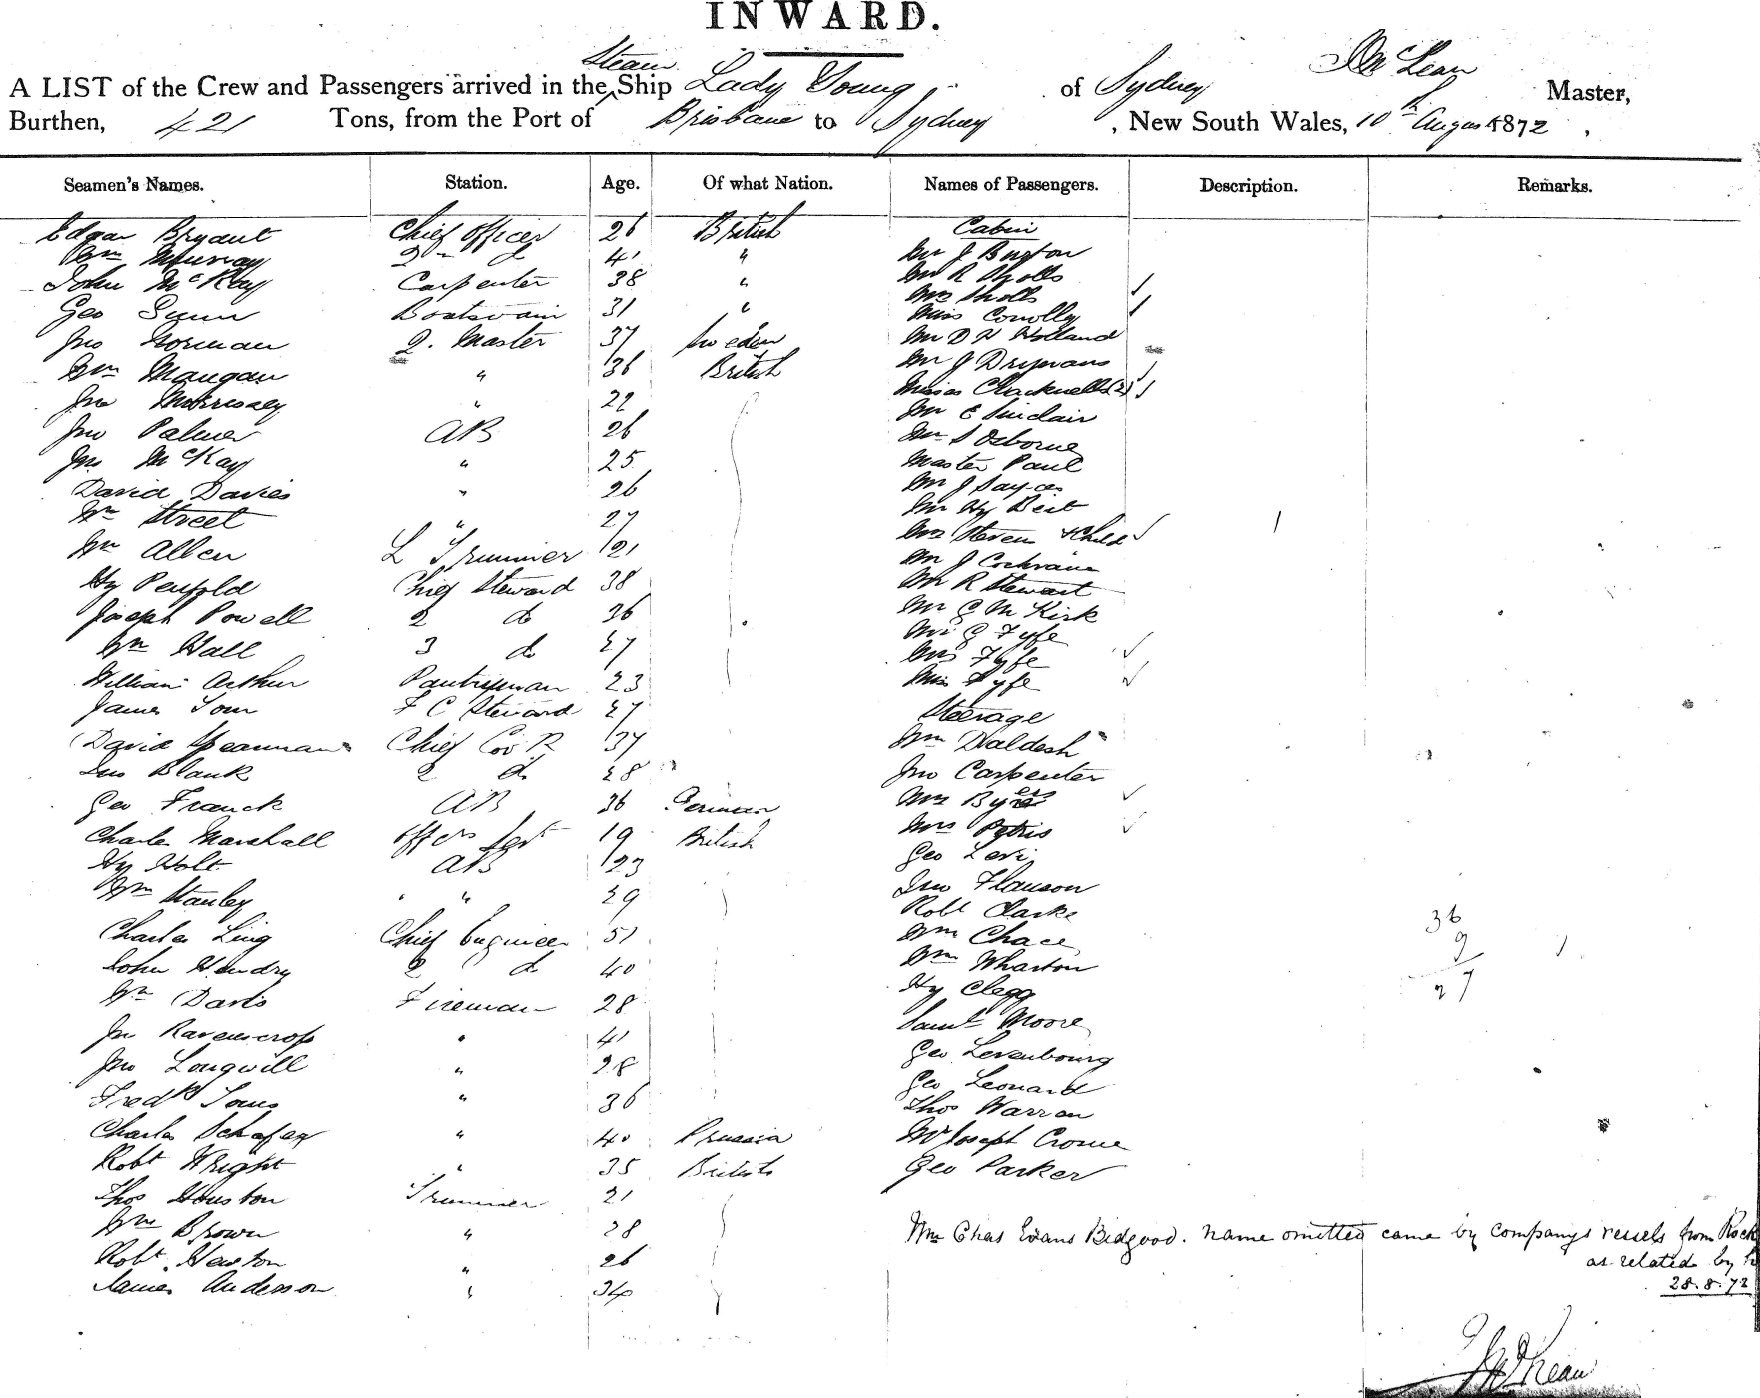 INWARD.
Steam
A LIST of the Crew and Passengers arrived in the Ship Lady Young of Sydney McLean Master,
Burthen, 421 Tons, from the Port of Brisbane to Sydney, New South Wales, 10th August 1872
Seamen's Names. Station. Age. Of what Nation. Names of Passengers. Description. Remarks.
Edgar Bryant Chief Officer 26 British Cabin
Wm Murray 2 d 41 " Mr J Buxton
John McKay Carpenter 38 " Mr R Sholls
Mrs Sholls
Geo Boatswain 31 " Miss Conolly
Jno Gorman Q. Master 37 Sweden Mr D H Holland
Wm Mangan " 36 British Mr J
Jno Morrissey " 22 Misses Cracknells (2)
Mr E Sinclair
Jno Palmer AB 26 Mr S Osborne
Jno McKay " 25 Master Paul
David Davies " 26 Mr J Sayce
Wm Street " 27 Mr Hy Beit
Mrs Steven & Child
Wm Allen L Trimmer 21 Mr J Cochrane
Hy Penfold Chief Steward 38 Mr R Stewart
Joseph Powell 2 do 36 Mr G M Kirk
Mr G Fyfe
Wm Hall 3 do 27 Mrs Fyfe
William Arthur Pantryman 23 Miss Fyfe
James Tom F C Steward 27 Steerage
David Chief Cook 37 Wm
Jno Blank 2 d 28 Jno Carpenter
Geo Franck AB 36 German Mrs Byres
Charles Marshall Offcrs Servt 19 British Mrs Petris
Hy Holt AB 23 Geo Levi
Wm Stanley " 29 Jno Flanson
Robt Clarke
Charles Ling Chief Engineer 51 Wm Chace 36
John Hendry 2 d 40 Wm Wharton 9
Wm Davis Fireman 28 Hy Clegg 27
Jno Ravenscroft " 41 Saml Moore
Jno Longwill " 28 Geo Levenbourg
Fredk Toms " 36 Geo Leonard
Thos Warran
Charles Schafer " 40 Prussia Mr Joseph Crome
Robt Wright " 35 British Geo Parker
Thos Houston Trimmer 21
Wm Brown " 28 Mr Chas Evans Bidgood. name omitted came by companys vessels from Rock
Robt Newton " 26 as related by h
James Anderson " 34 28.8.72
McLean